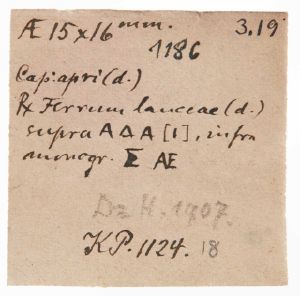 Æ 15x16 mm. 3.19
1186
Cap: apri (d.)
Rx Ferrum lanceae (d.)
supra Α Δ Α [1], infra
monogr. Σ ΑΕ
Dz H. 1707.
KP. 1124. 18